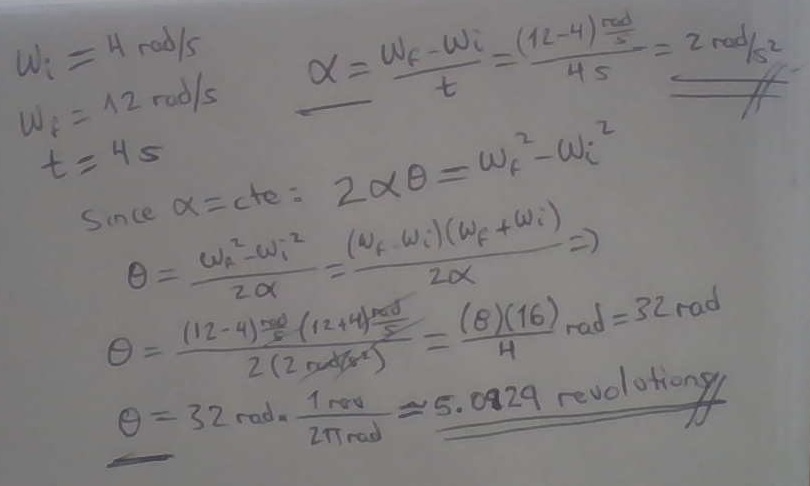 ωi = 4 rad/s
ωf = 12 rad/s
t = 4 s
α = (ωf - ωi)/t = ((12-4) rad/s)/(4 s) = 2 rad/s²
Since α = cte: 2αθ = ωf² - ωi²
θ = (ωf² - ωi²)/(2α) = ((ωf - ωi)(ωf + ωi))/(2α) =>
θ = ((12-4) rad/s (12+4) rad/s)/(2(2 rad/s²)) = ((8)(16))/4 rad = 32 rad
θ = 32 rad · (1 rev)/(2π rad) ≈ 5.0929 revolutions